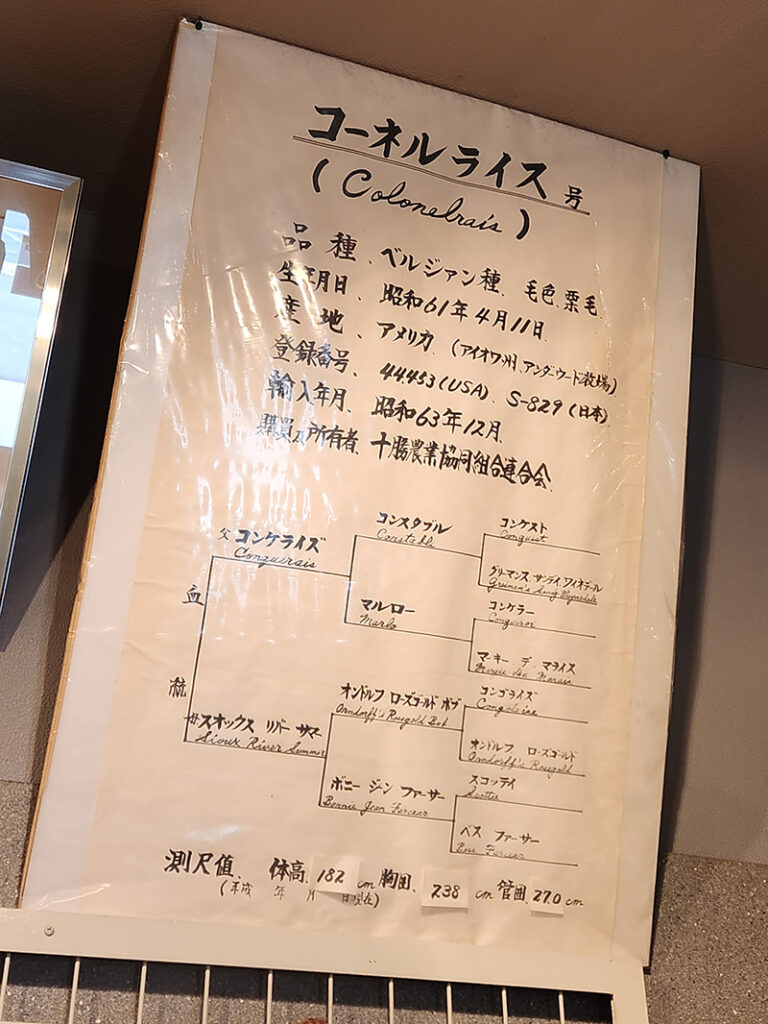 コーネルライス号
(Colonelrais)
品種、ベルジァン種、毛色、栗毛
生年月日、昭和61年4月11日
産地、アメリカ (アイオワ州、アンダーウード牧場)
登録番号、44453(USA)、S-829(日本)
輸入年月、昭和63年12月、
購買及所有者、十勝農業協同組合連合会
血統
父 コンケライズ
Conquerais
コンスタブル
コンケスト
Conquest
グリーマンス、サンデイ ワイオデール
マルロー
Marlo
コンケラー
Conqueror
マーキー デ マライス
母 スオックス リバー サマー
Sioux River Summer
オンドルフ ローズゴールド ボブ
Orndorff's Rosegold Bob
コンゴライズ
オンドルフ ローズゴールド
Orndorff's Rosegold
ボニー ジーン ファーサー
Bonnie Jean Farceur
スコッテイ
Scottie
ベス ファーサー
Bess Farceur
測尺値、体高、182cm 胸囲、238cm 管囲、27.0cm
(平成 年 月 日現在)